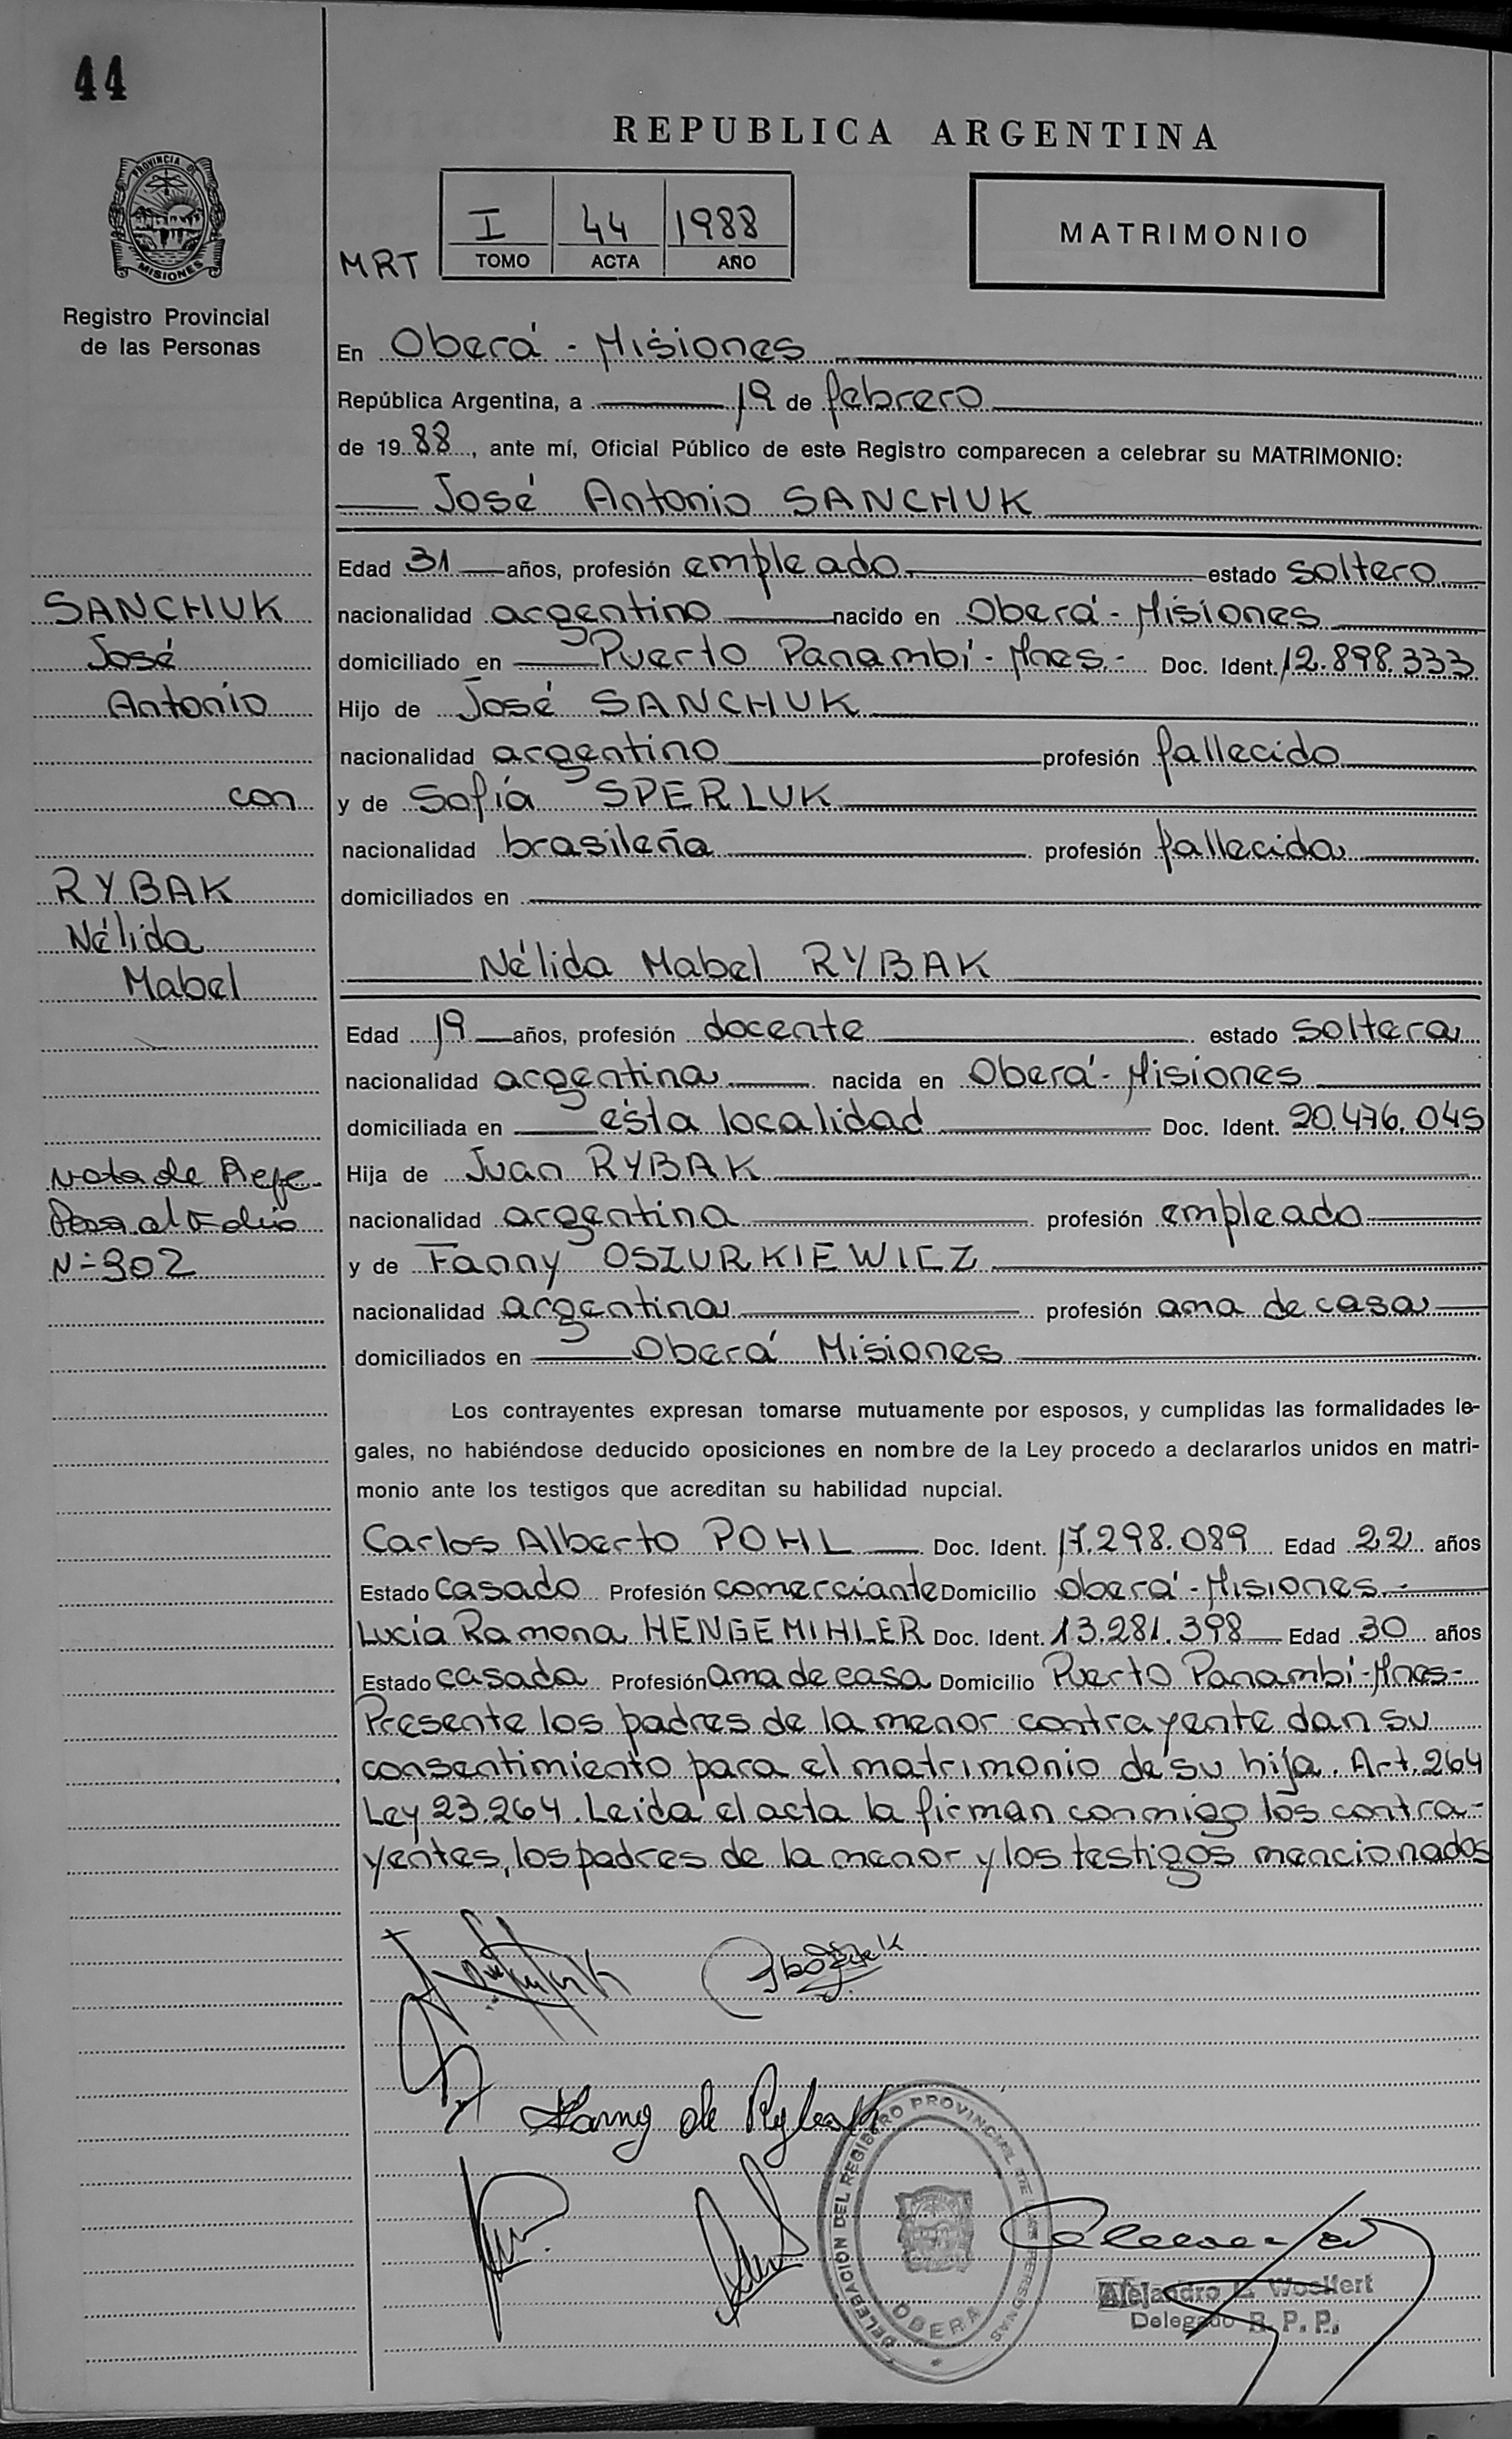 44
PROVINCIA DE
MISIONES
Registro Provincial
de las Personas
REPUBLICA ARGENTINA
MRT
I 44 1988
TOMO ACTA AÑO
MATRIMONIO
En Oberá - Misiones
República Argentina, a 19 de febrero
de 1988, ante mí, Oficial Público de este Registro comparecen a celebrar su MATRIMONIO:
José Antonio SANCHUK
Edad 31 años, profesión empleado estado soltero
nacionalidad argentino nacido en Oberá - Misiones
domiciliado en Puerto Panambí - Mnes.- Doc. Ident. 12.898.333
Hijo de José SANCHUK
nacionalidad argentino profesión fallecido
y de Sofía SPERLUK
nacionalidad brasileña profesión fallecida
domiciliados en
Nélida Mabel RYBAK
Edad 19 años, profesión docente estado soltera
nacionalidad argentina nacida en Oberá - Misiones
domiciliada en ésta localidad Doc. Ident. 20.476.045
Hija de Juan RYBAK
nacionalidad argentina profesión empleado
y de Fanny OSZURKIEWICZ
nacionalidad argentina profesión ama de casa
domiciliados en Oberá Misiones
SANCHUK
José
Antonio
con
RYBAK
Nélida
Mabel
Nota de Refe-
al Folio
Nº 302
Los contrayentes expresan tomarse mutuamente por esposos, y cumplidas las formalidades le-
gales, no habiéndose deducido oposiciones en nombre de la Ley procedo a declararlos unidos en matri-
monio ante los testigos que acreditan su habilidad nupcial.
Carlos Alberto POHL Doc. Ident. 17.298.089 Edad 22 años
Estado casado Profesión comerciante Domicilio Oberá - Misiones.-
Lucía Ramona HENGEMIHLER Doc. Ident. 13.281.398 Edad 30 años
Estado casada Profesión ama de casa Domicilio Puerto Panambí - Mnes-
Presente los padres de la menor contrayente dan su
consentimiento para el matrimonio de su hija. Art. 264
Ley 23.264. Leida el acta la firman conmigo los contra-
yentes, los padres de la menor y los testigos mencionados
Fanny de Rybak
DELEGACION DEL REGISTRO PROVINCIAL DE LAS PERSONAS
OBERA
Alejandro E. Wolfert
Delegado R. P. P.